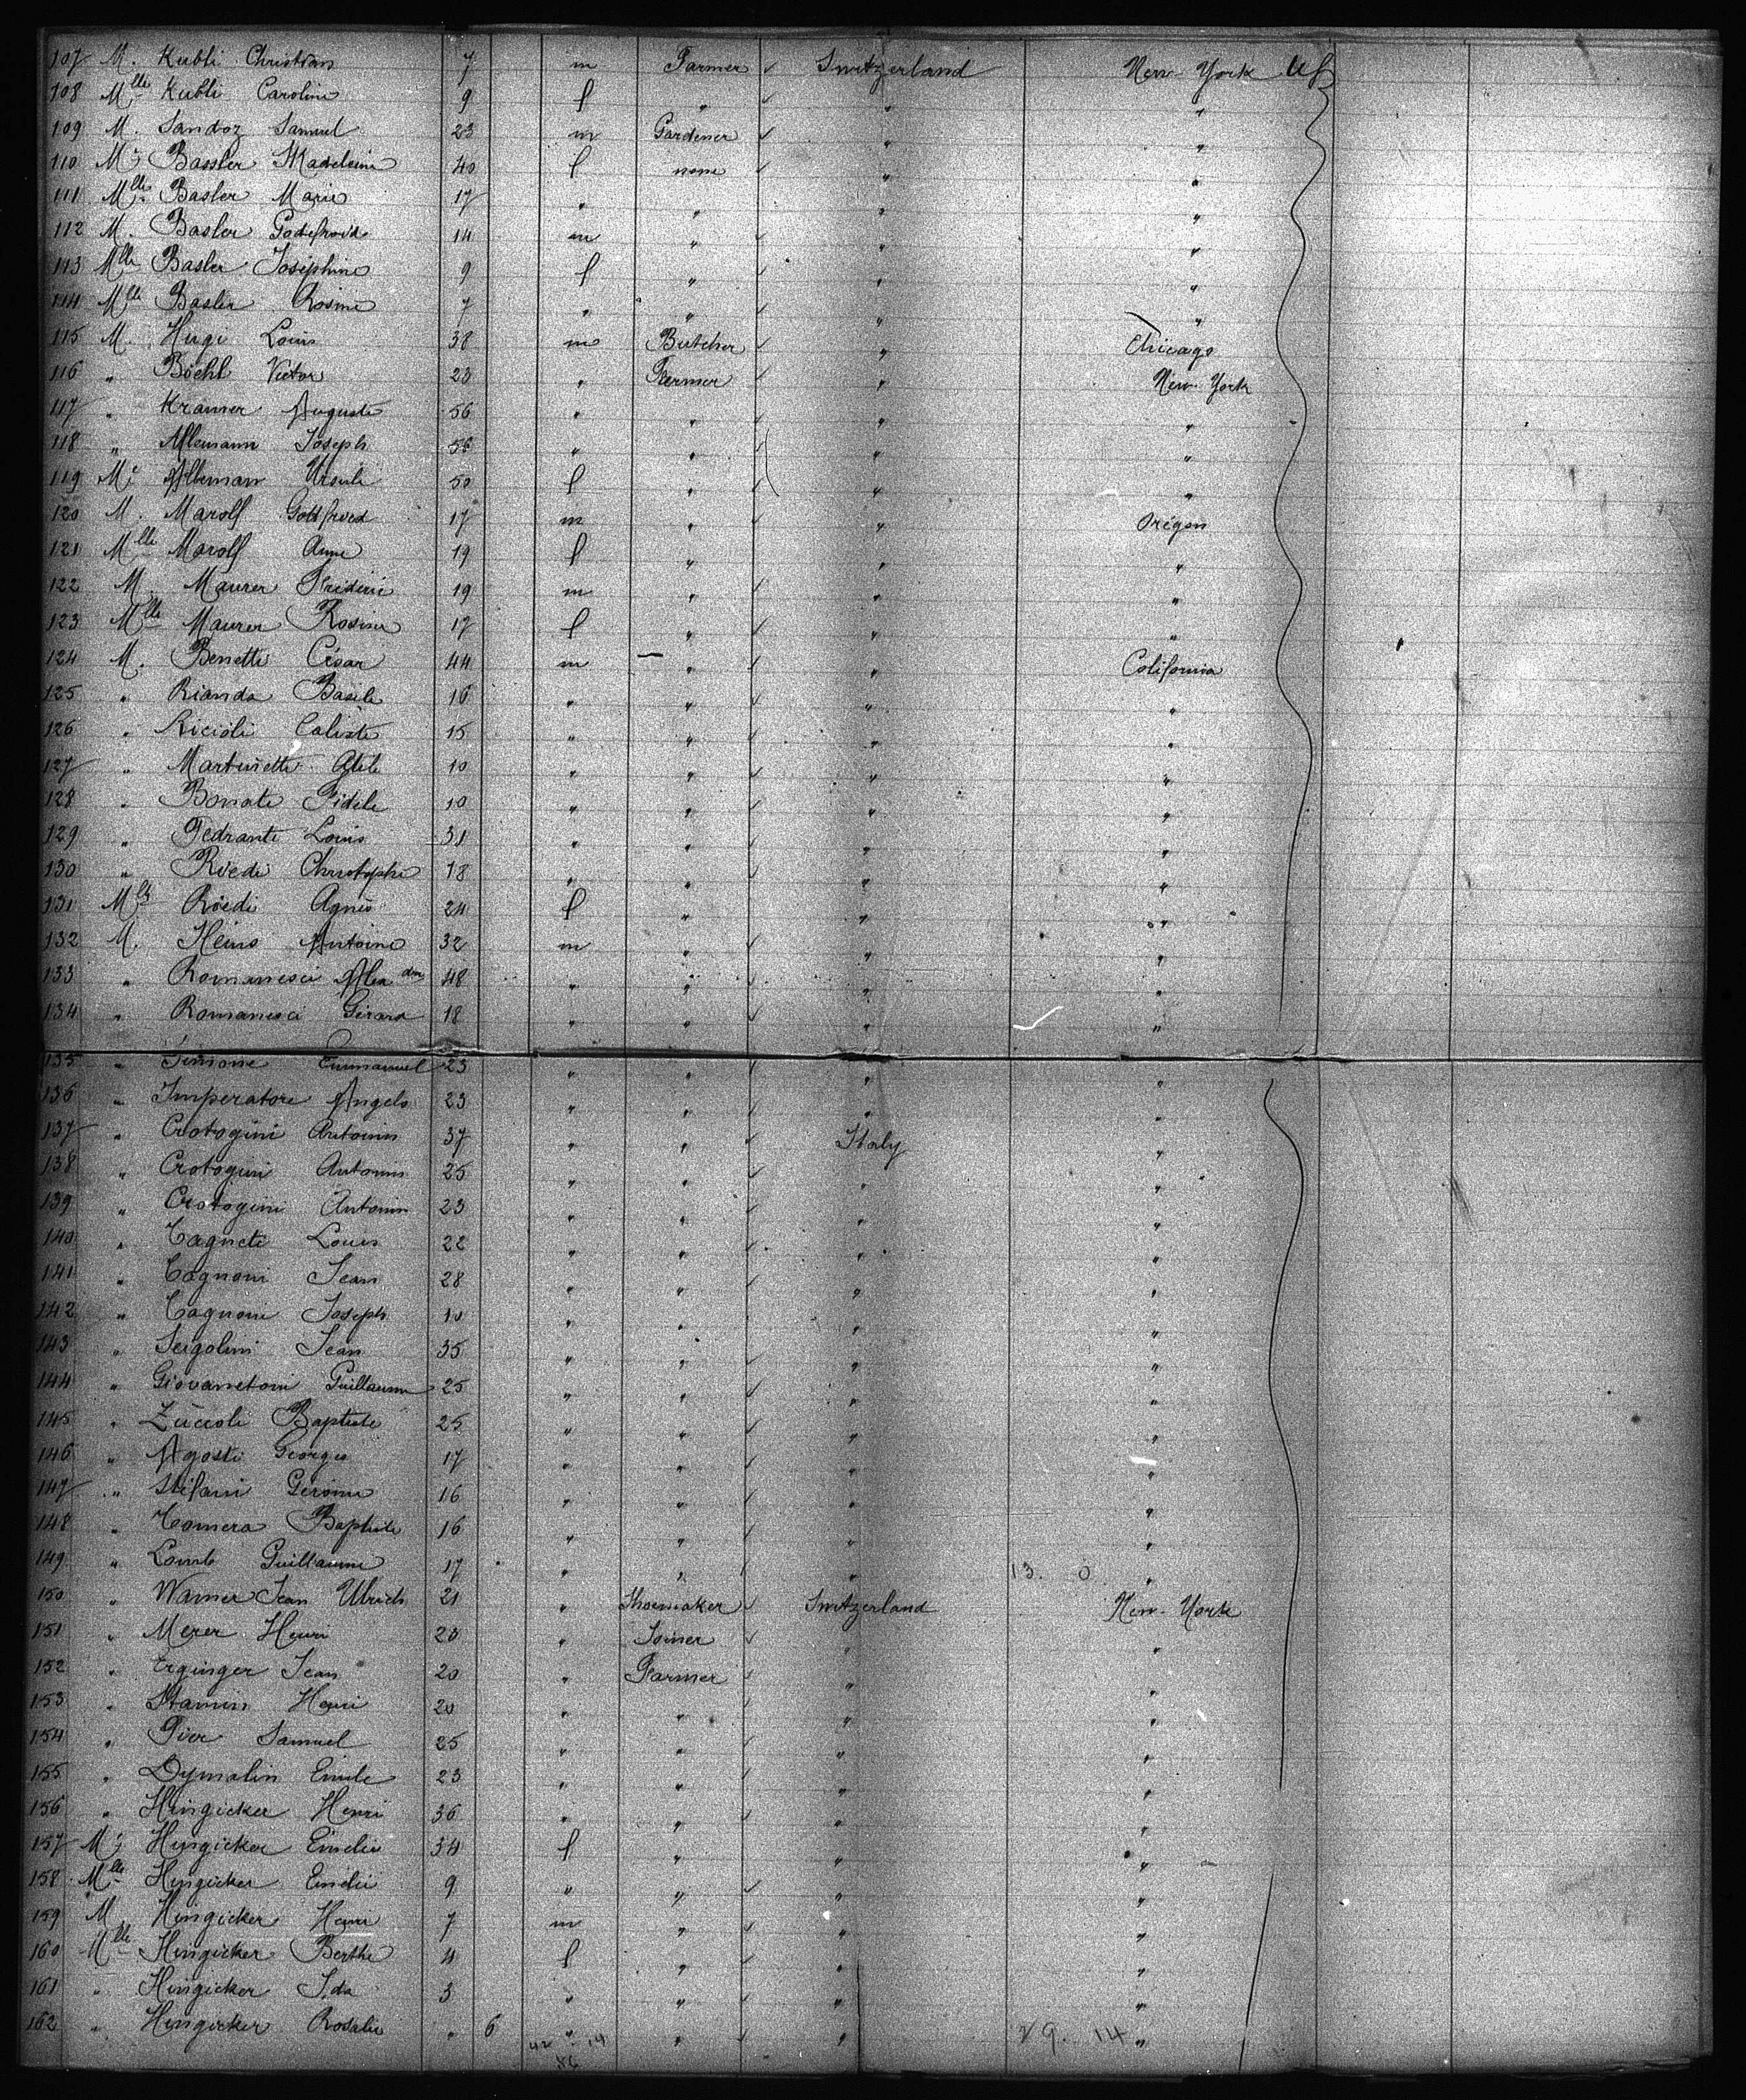 107 M. Kubli Christian 7 m Farmer ✓ Switzerland New-York US
108 Mlle Kubli Caroline 9 f " ✓ " "
109 M. Sandoz Samuel 23 m Gardener ✓ " "
110 Me Bassler Madeleine 40 f none ✓ " "
111 Mlle Basler Marie 17 " " " "
112 M. Basler Godefroid 14 m " ✓ " "
113 Mlle Basler Joséphine 9 f " ✓ " "
114 Mlle Basler Rosine 7 " " ✓ " "
115 M. Hugi Louis 38 m Butcher ✓ " Chicago
116 " Böehl Victor 23 " Farmer ✓ " New-York
117 " Kramer Auguste 56 " " ✓ " "
118 " Allemann Joseph 56 " " " "
119 Me Alleman Ursule 50 f " ✓ " "
120 M. Marolf Gottfried 17 m " ✓ " Orégon
121 Mlle Marolf Anna 19 f " " "
122 M. Maurer Fréderic 19 m " ✓ " "
123 Mlle Maurer Rosine 17 f " ✓ " "
124 M. Benetti César 44 m " ✓ " California
125 " Rianda Basile 16 " " ✓ " "
126 " Ricioli Caliste 15 " " ✓ " "
127 " Martinetti 10 " " ✓ " "
128 " Bonate Fidele 10 " " ✓ " "
129 " Pedranti Louis 31 " " ✓ " "
130 " Röedi Christophe 18 " " ✓ " "
131 Mlle Röedi Agnes 24 f " " "
132 M. Heino Antoine 32 m " ✓ " "
133 " Romanesci 48 " " ✓ " "
134 " Romanesci Gérard 18 " " ✓ " "
135 " Simone Emmanuel 23 " " ✓ " "
136 " Imperatore Angelo 23 " " ✓ " "
137 " Crotogini Antonin 37 " " ✓ Italy "
138 " Crotogini Antonin 25 " " ✓ " "
139 " Crotogini Antonin 23 " " ✓ " "
140 " Cagneti Louis 22 " " ✓ " "
141 " Cagnoni Jean 28 " " ✓ " "
142 " Cagnoni Joseph 10 " " " "
143 " Seigolini Jean 35 " " ✓ " "
144 " Giovanetoni Guillaume 25 " " ✓ " "
145 " Zuccoli Baptiste 25 " " ✓ " "
146 " Agosti Georges 17 " " ✓ " "
147 " Stefani Gérome 16 " " ✓ " "
148 " Comera Baptiste 16 " " ✓ " "
149 " Lomb Guillaume 17 " " " 13. 0 "
150 " Warner Jean Ulrich 21 " Shoemaker ✓ Switzerland New-York
151 " Merer Henri 20 " Joiner ✓ " "
152 " Erginger Jean 20 " Farmer ✓ " "
153 " Stamin Henri 20 " " ✓ " "
154 " Pier Samuel 25 " " ✓ " "
155 " Dymalin Emile 23 " " ✓ " "
156 " Hingicker Henri 36 " " ✓ " "
157 Me Hingicker Emelie 34 f " " "
158 Mlle Hingicker Emélie 9 " " ✓ " "
159 M Hingicker Henri 7 m " ✓ " "
160 Mlle Hingicker Berthe 4 f " ✓ " "
161 " Hingicker Ida 3 " " ✓ " "
162 " Hingicker Rosalie " 6 " " ✓ " 29. 14 "
42 14